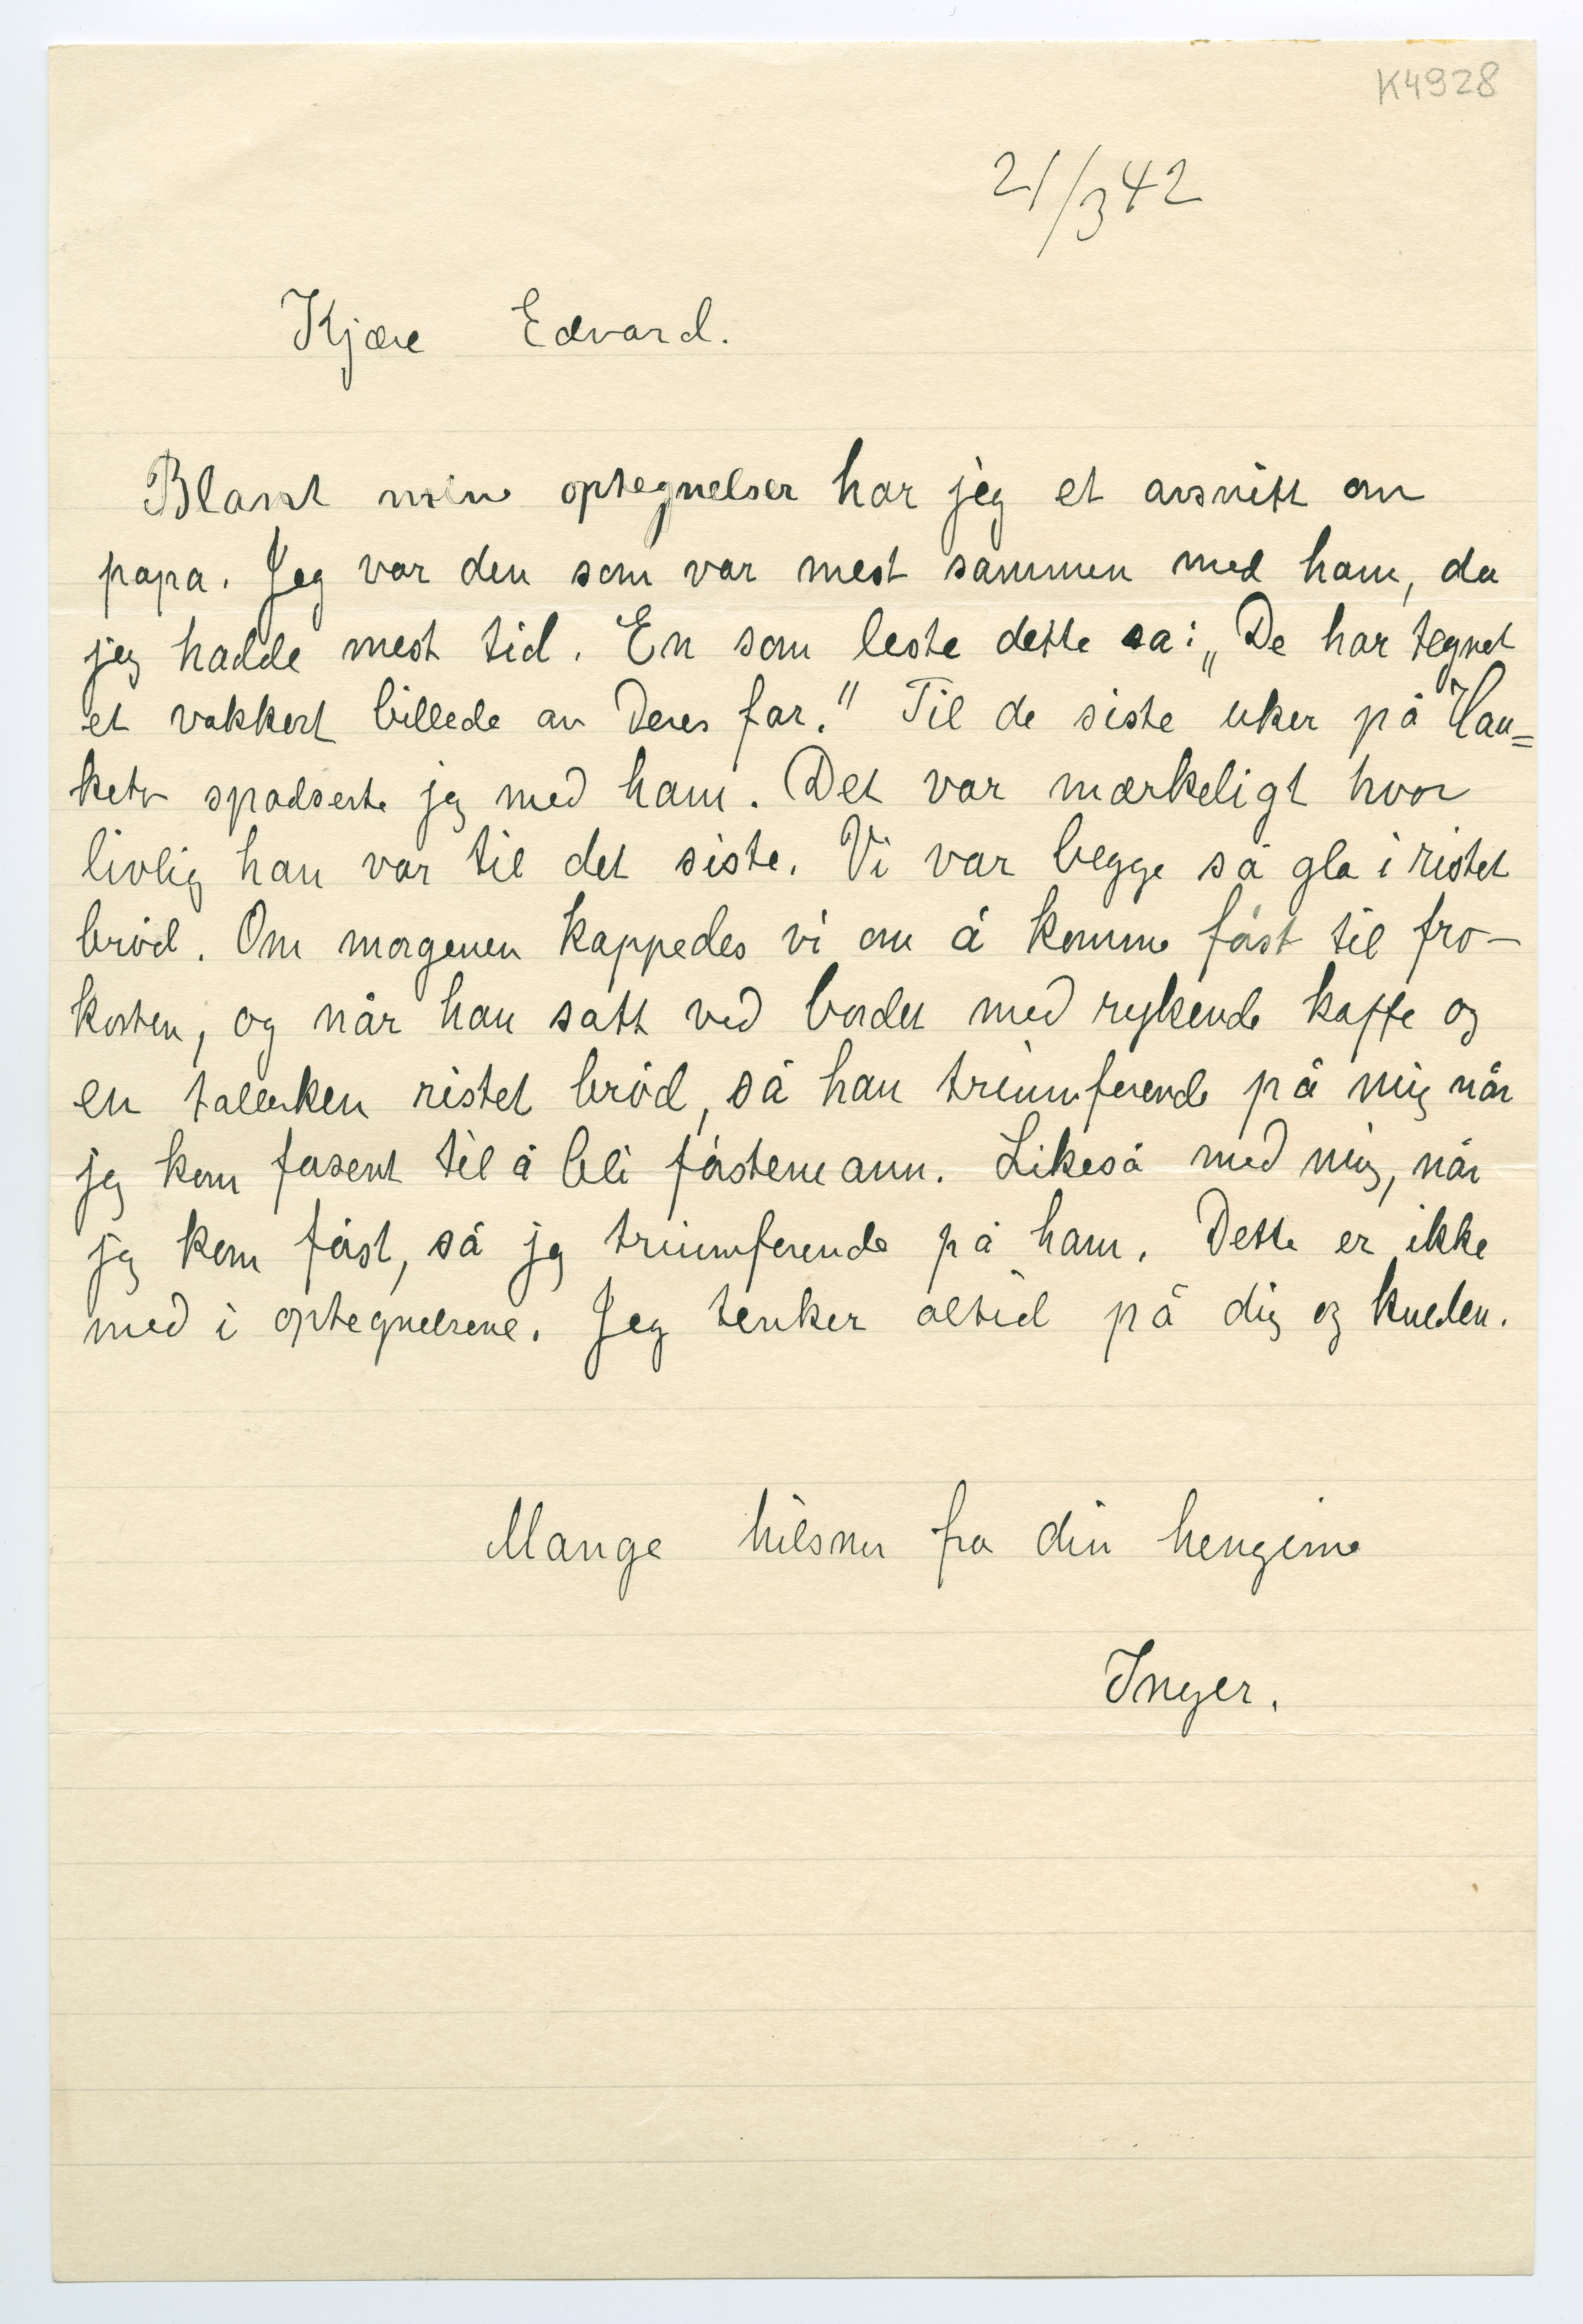 K4928
21/3 42
Kjære Edvard.
Blant mine optegnelser har jeg et avsnitt om
papa. Jeg var den som var mest sammen med ham, da
jeg hadde mest tid. En som leste dette sa: „De har tegnet
et vakkert billede av Deres far." Til de siste uker på Hau=
keto spadserte jeg med ham. Det var mærkeligt hvor
livlig han var til det siste. Vi var begge så gla i ristet
brød. Om morgenen kappedes vi om å komme først til fro-
kosten, og når han satt ved bordet med rykende kaffe og
en tallerken ristet brød, så han triumferende på mig når
jeg kom forsent til å bli førstemann. Likeså med mig, når
jeg kom først, så jeg triumferende på ham. Dette er ikke
med i optegnelsene. Jeg tenker altid på dig og kulden.
Mange hilsner fra din hengivne
Inger.